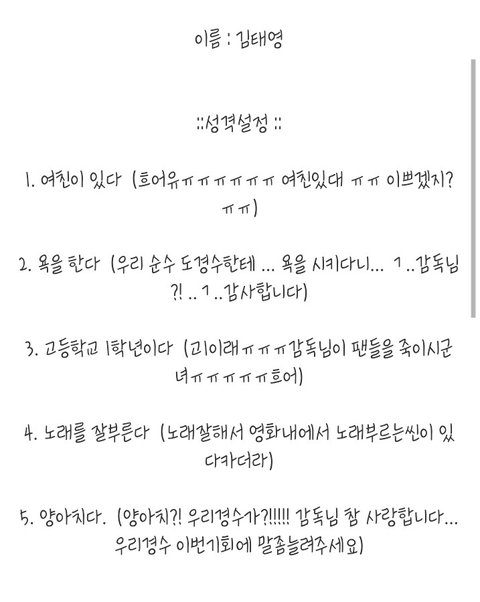 이름 : 김태영
::성격설정 ::
1. 여친이 있다 (흐어유ㅠㅠㅠㅠㅠㅠ 여친있대 ㅠㅠ 이쁘겠지?
ㅠㅠ)
2. 욕을 한다 (우리 순수 도경수한테 ... 욕을 시키다니... ㄱ..감독님
?! ..ㄱ..감사합니다)
3. 고등학교 1학년이다 (고1이래ㅠㅠㅠ감독님이 팬들을 죽이시군
녀ㅠㅠㅠㅠㅠ흐어)
4. 노래를 잘부른다 (노래잘해서 영화내에서 노래부르는씬이 있
다카더라)
5. 양아치다. (양아치?! 우리경수가?!!!!! 감독님 참 사랑합니다...
우리경수 이번기회에 말좀늘려주세요)